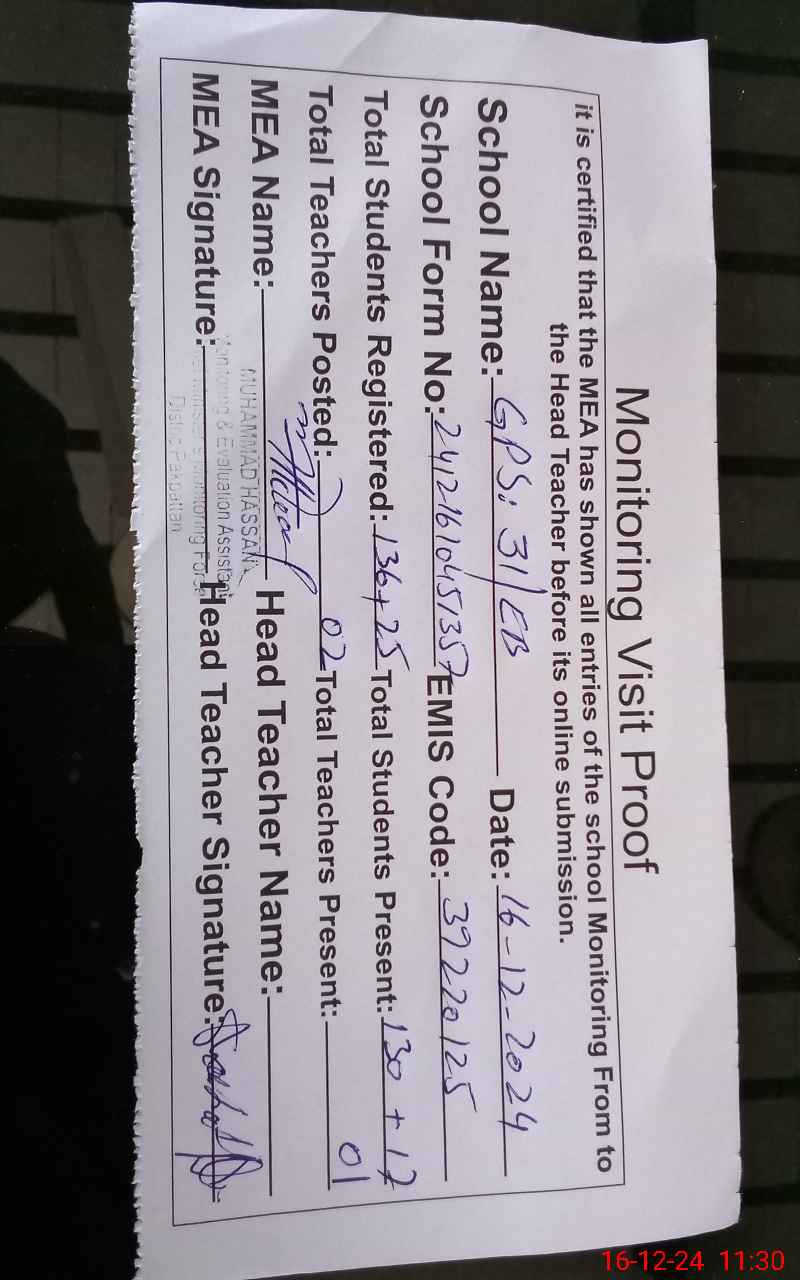 Monitoring Visit Proof
it is certified that the MEA has shown all entries of the school Monitoring From to
the Head Teacher before its online submission.
School Name: GPS: 31/EB Date: 16-12-2024
School Form No: 24121610451357 EMIS Code: 39220125
Total Students Registered: 136+25 Total Students Present: 130+17
Total Teachers Posted: 02 Total Teachers Present: 01
MEA Name: Head Teacher Name:
MUHAMMAD HASSAN
MEA Signature: Head Teacher Signature:
Monitoring & Evaluation Assistant
Monitoring Force
District Pakpattan
16-12-24 11:30